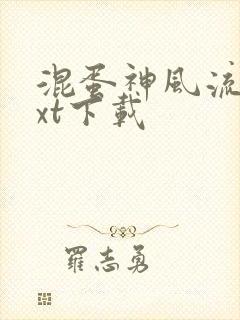 混蛋神風流
xt下載
羅志勇